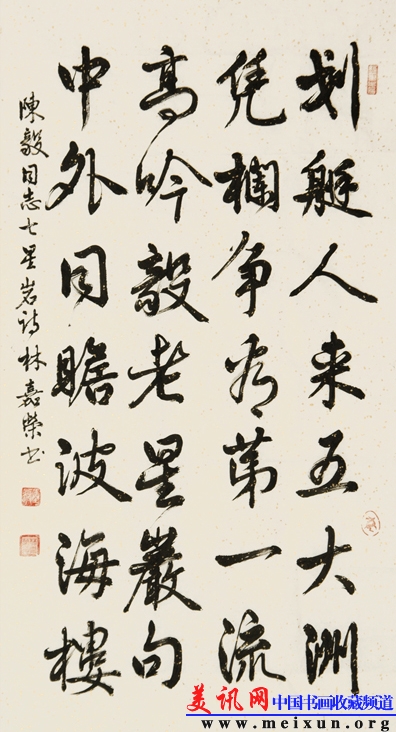 划艇人来五大洲
凭栏争看第一流
高吟毅老星巖句
中外同瞻波海樓
陳毅同志七星岩诗林嘉榮书
美讯网 中国书画收藏频道
www.meixun.org